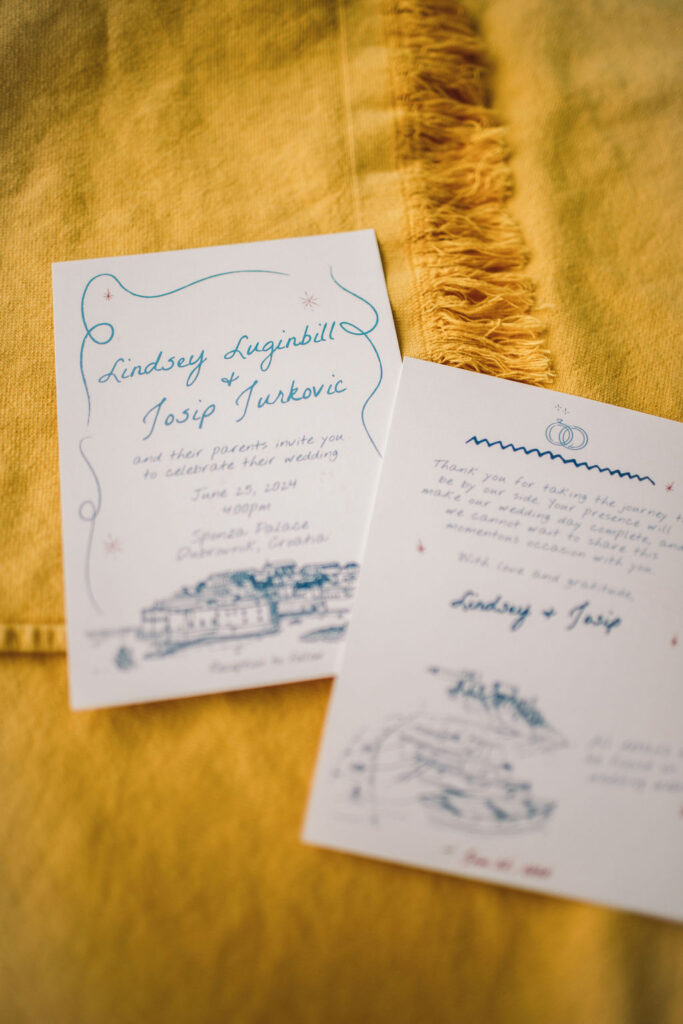 Lindsey Luginbill
+
Josip Jurkovic
and their parents invite you
to celebrate their wedding
June 25, 2024
4:00pm
Sponza Palace
Dubrovnik, Croatia
Reception to follow
Thank you for taking the journey to
be by our side. Your presence will
make our wedding day complete, and
we cannot wait to share this
momentous occasion with you.
With love and gratitude,
Lindsey + Josip
All details
be found
wedding